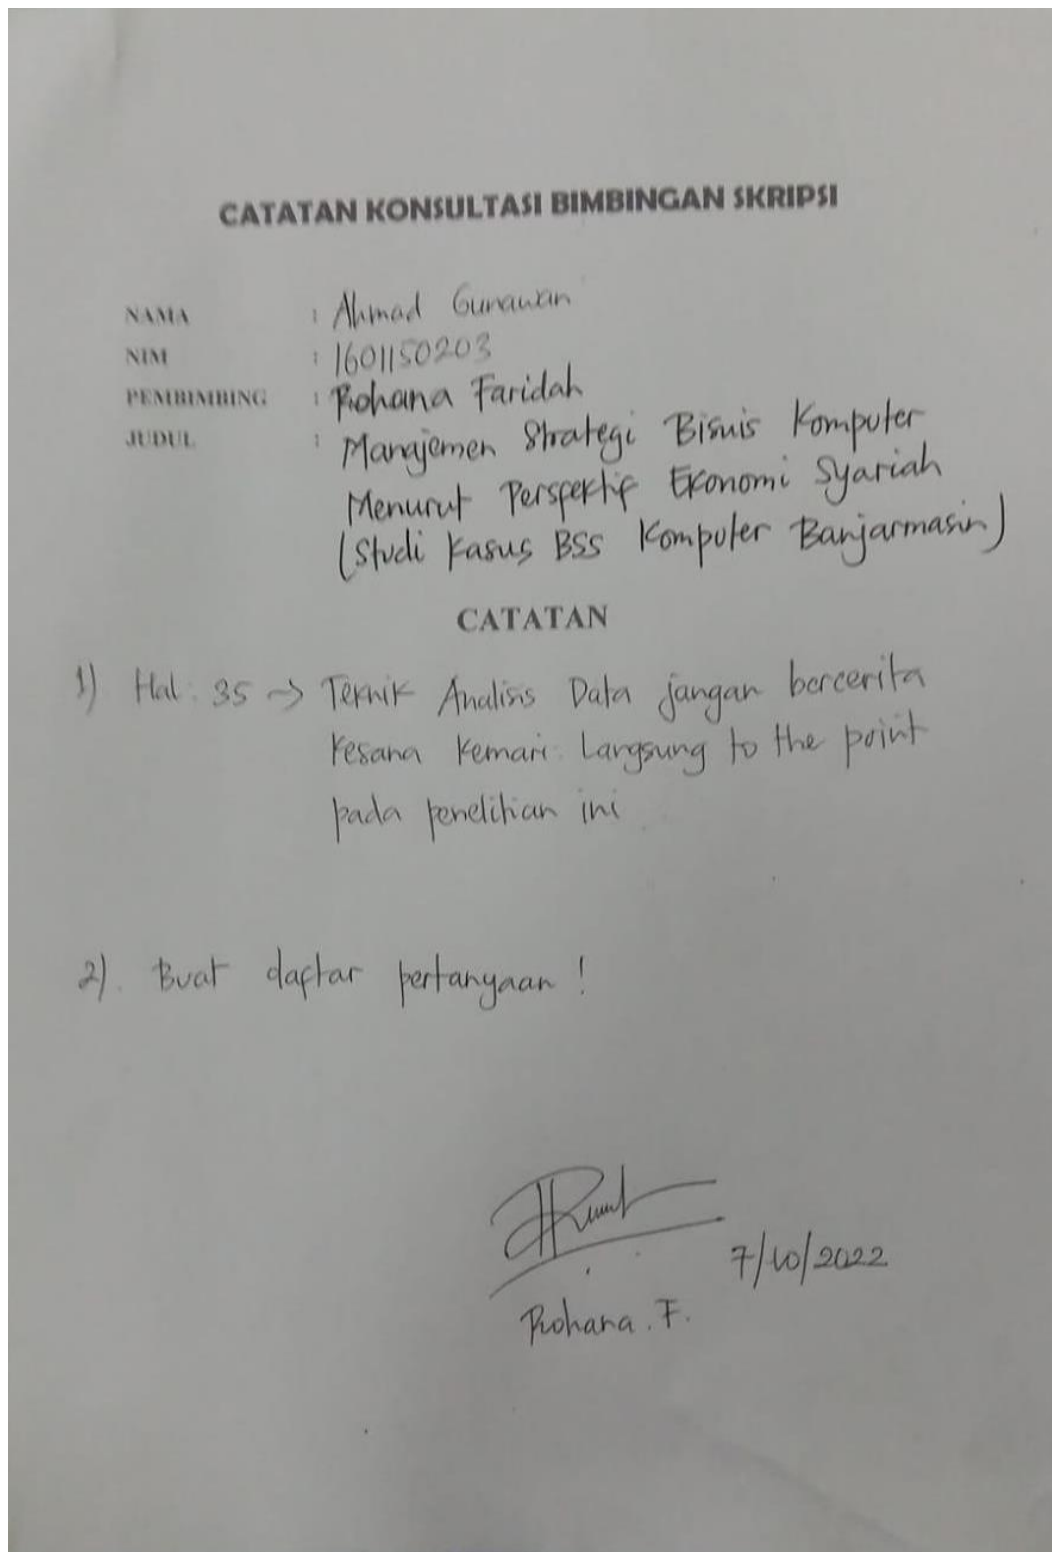 CATATAN KONSULTASI BIMBINGAN SKRIPSI
NAMA : Ahmad Gunawan
NIM : 1601150203
PEMBIMBING : Rohana Faridah
JUDUL : Manajemen Strategi Bisnis Komputer
Menurut Perspektif Ekonomi Syariah
(Studi Kasus BSS Komputer Banjarmasin)
CATATAN
1) Hal. 35 → Teknik Analisis Data jangan bercerita
kesana kemari. Langsung to the point
pada penelitian ini
2). Buat daftar pertanyaan !
7/10/2022
Rohana. F.